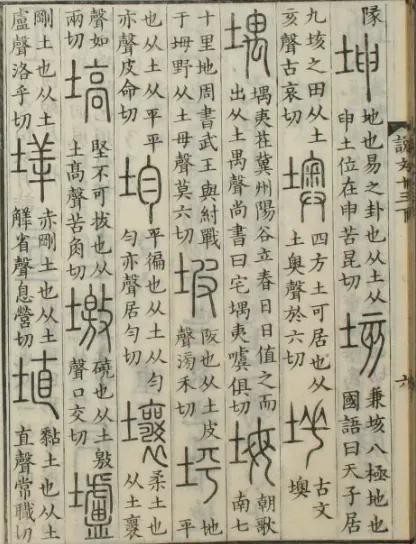 隊
坤
地也易之卦也从土从
申土位在申苦昆切
垓
兼垓八極地也
國語曰天子居
九垓之田从土
亥聲古哀切
墺
四方土可居也从
土奧聲於六切
古文
墺
堣
堣夷在冀州陽谷立春日日值之而
出从土禺聲尚書曰宅堣夷噳俱切
坶
朝歌
南七
十里地周書武王與紂戰
于坶野从土母聲莫六切
坡
阪也从土皮
聲滂禾切
坪
地
平
也从土从平平
亦聲皮命切
均
平徧也从土从勻
勻亦聲居勻切
壤
柔土也
从土襄
聲如
兩切
塙
堅不可拔也从
土高聲苦角切
墽
磽也从土敫
聲口交切
壚
剛土也从土
盧聲洛乎切
赤剛土也从土
解省聲息營切
埴
黏土也从土
直聲常職切
說文十三下
六